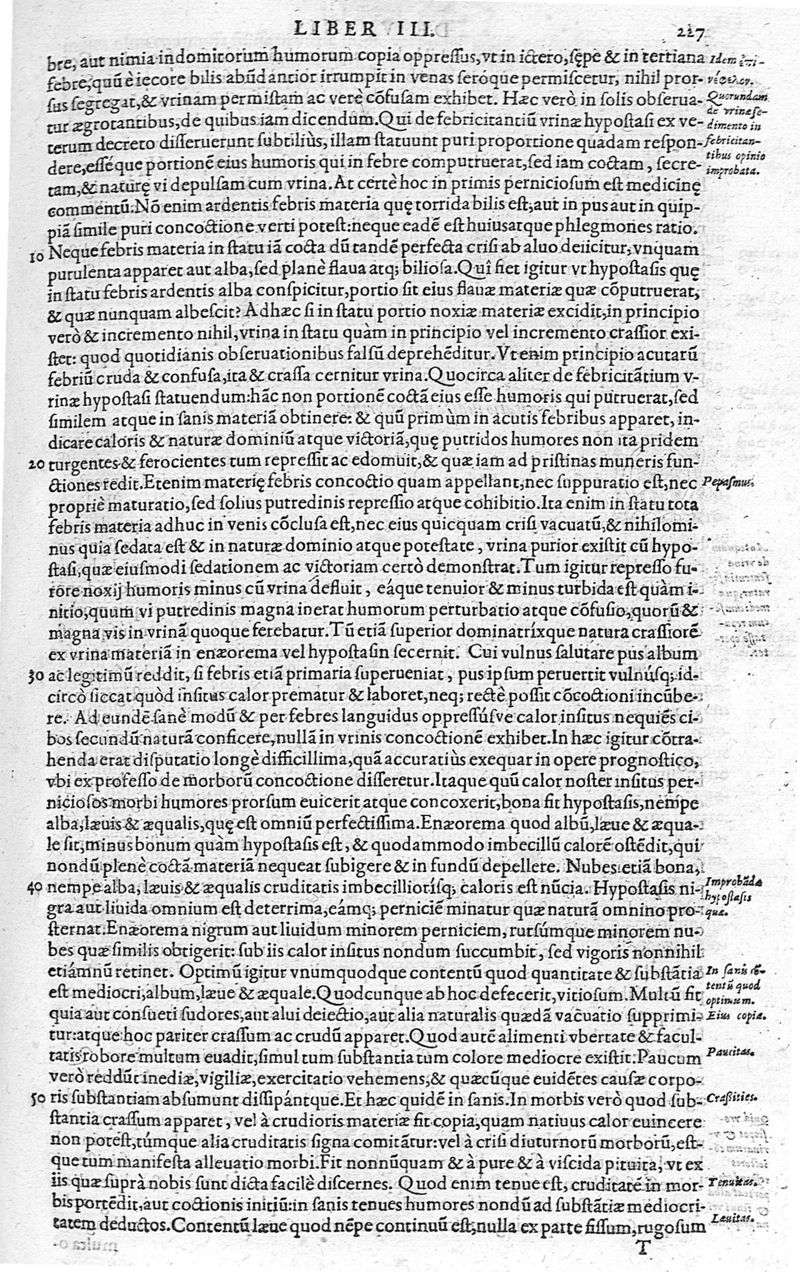 LIBER III. 227
bre, aut nimia indomitorum humorum copia oppressus, vt in ictero; sępe & in tertiana
febre, quū è iecore bilis abūdantior irrumpit in venas seróque permiscetur, nihil pror-
sus segregat, & vrinam permistam ac verè cōfusam exhibet. Hæc verò in solis obserua-
tur ægrotantibus, de quibus iam dicendum. Qui de febricitantiū vrinæ hypostasi ex ve-
terum decreto disseruerunt subtiliùs, illam statuunt puri proportione quadam respon-
dere, esséque portionē eius humoris qui in febre computruerat, sed iam coctam, secre-
tam, & naturę vi depulsam cum vrina. At certè hoc in primis perniciosum est medicinę
commentū: Nō enim ardentis febris materia quę torrida bilis est, aut in pus aut in quip-
piā simile puri concoctione verti potest: neque eadē est huius atque phlegmones ratio.
10 Neque febris materia in statu iā cocta dū tandē perfecta crisi ab aluo deiicitur, vnquam
purulenta apparet aut alba, sed planè flaua atq; biliosa. Quî fiet igitur vt hypostasis quę
in statu febris ardentis alba conspicitur, portio sit eius flauæ materiæ quæ cōputruerat,
& quæ nunquam albescit? Adhæc si in statu portio noxiæ materiæ excidit, in principio
verò & incremento nihil, vrina in statu quàm in principio vel incremento crassior exi-
stet: quod quotidianis obseruationibus falsū deprehēditur. Vt enim principio acutarū
febriū cruda & confusa, ita & crassa cernitur vrina. Quocirca aliter de febricitātium v-
rinæ hypostasi statuendum: hāc non portionē coctā eius esse humoris qui putruerat, sed
similem atque in sanis materiā obtinere: & quū primùm in acutis febribus apparet, in-
dicare caloris & naturæ dominiū atque victoriā, quę putridos humores non ita pridem
20 turgentes & ferocientes tum repressit ac edomuit, & quæ iam ad pristinas muneris fun-
ctiones redit. Etenim materię febris concoctio quam appellant, nec suppuratio est, nec
propriè maturatio, sed solius putredinis repressio atque cohibitio. Ita enim in statu tota
febris materia adhuc in venis cōclusa est, nec eius quicquam crisi vacuatū, & nihilomi-
nus quia sedata est & in naturæ dominio atque potestate, vrina purior existit cū hypo-
stasi, quæ eiusmodi sedationem ac victoriam certò demonstrat. Tum igitur represso fu-
rore noxij humoris minus cū vrina defluit, eáque tenuior & minus turbida est quàm i-
nitio, quum vi putredinis magna inerat humorum perturbatio atque cōfusio, quorū &
magna vis in vrinā quoque ferebatur. Tū etiā superior dominatríxque natura crassiorē
ex vrina materiā in enæorema vel hypostasin secernit. Cui vulnus salutare pus album
30 ac legitimū reddit, si febris etiā primaria superueniat, pus ipsum peruertit vulnúsq; id-
circò siccat quòd insitus calor prematur & laboret, neq; rectè possit cōcoctioni incūbe-
re. Ad eundē sanè modū & per febres languidus oppressúsve calor insitus nequiēs ci-
bos secundū naturā conficere, nullā in vrinis concoctionē exhibet. In hæc igitur cōtra-
henda erat disputatio longè difficillima, quā accuratiùs exequar in opere prognostico,
vbi ex professo de morborū concoctione disseretur. Itaque quū calor noster insitus per-
niciosos morbi humores prorsum euicerit atque concoxerit, bona fit hypostasis, nempe
alba, læuis & æqualis, quę est omniū perfectissima. Enæorema quod albū, læue & æqua-
le sit, minus bonum quàm hypostasis est, & quodammodo imbecillū calorē ostēdit, qui
nondū plenè coctā materiā nequeat subigere & in fundū depellere. Nubes etiā bona,
40 nempe alba, læuis & æqualis cruditatis imbecilliorísq; caloris est nūcia. Hypostasis ni-
gra aut liuida omnium est deterrima, eámq; perniciē minatur quæ naturā omnino pro-
sternat. Enæorema nigrum aut liuidum minorem perniciem, rursúmque minorem nu-
bes quæ similis obtigerit: sub iis calor insitus nondum succumbit, sed vigoris nonnihil
etiámnū retinet. Optimū igitur vnumquodque contentū quod quantitate & substātia
est mediocri, album, læue & æquale. Quodcunque ab hoc defecerit, vitiosum. Multū fit
quia aut consueti sudores, aut alui deiectio, aut alia naturalis quædā vacuatio supprimi-
tur: atque hoc pariter crassum ac crudū apparet. Quod autē alimenti vbertate & facul-
tatis robore multum euadit, simul tum substantia tum colore mediocre existit. Paucum
verò reddūt inediæ, vigiliæ, exercitatio vehemens, & quæcūque euidētes causæ corpo-
50 ris substantiam absumunt dissipántque. Et hæc quidē in sanis. In morbis verò quod sub-
stantia crassum apparet, vel à crudioris materiæ fit copia, quam natiuus calor euincere
non potest, túmque alia cruditatis signa comitātur: vel à crisi diuturnorū morborū, est-
que tum manifesta alleuatio morbi. Fit nonnūquam & à pure & à viscida pituita, vt ex
iis quæ suprà nobis sunt dicta facilè discernes. Quod enim tenue est, cruditatē in mor-
bis portēdit, aut coctionis initiū: in sanis tenues humores nondū ad substātiæ mediocri-
tatem deductos. Contentū læue quod nēpe continuū est, nulla ex parte fissum, rugosum
T
Quorundam
de vrinæ se-
dimento in
febricitan-
tibus opinio
improbata.
Pepasmus.
Improbāda
hypostasis
quæ.
In sanis cō-
tentū quod
optimum.
Eius copia.
Paucitas.
Crassities.
Tenuitas.
Læuitas.